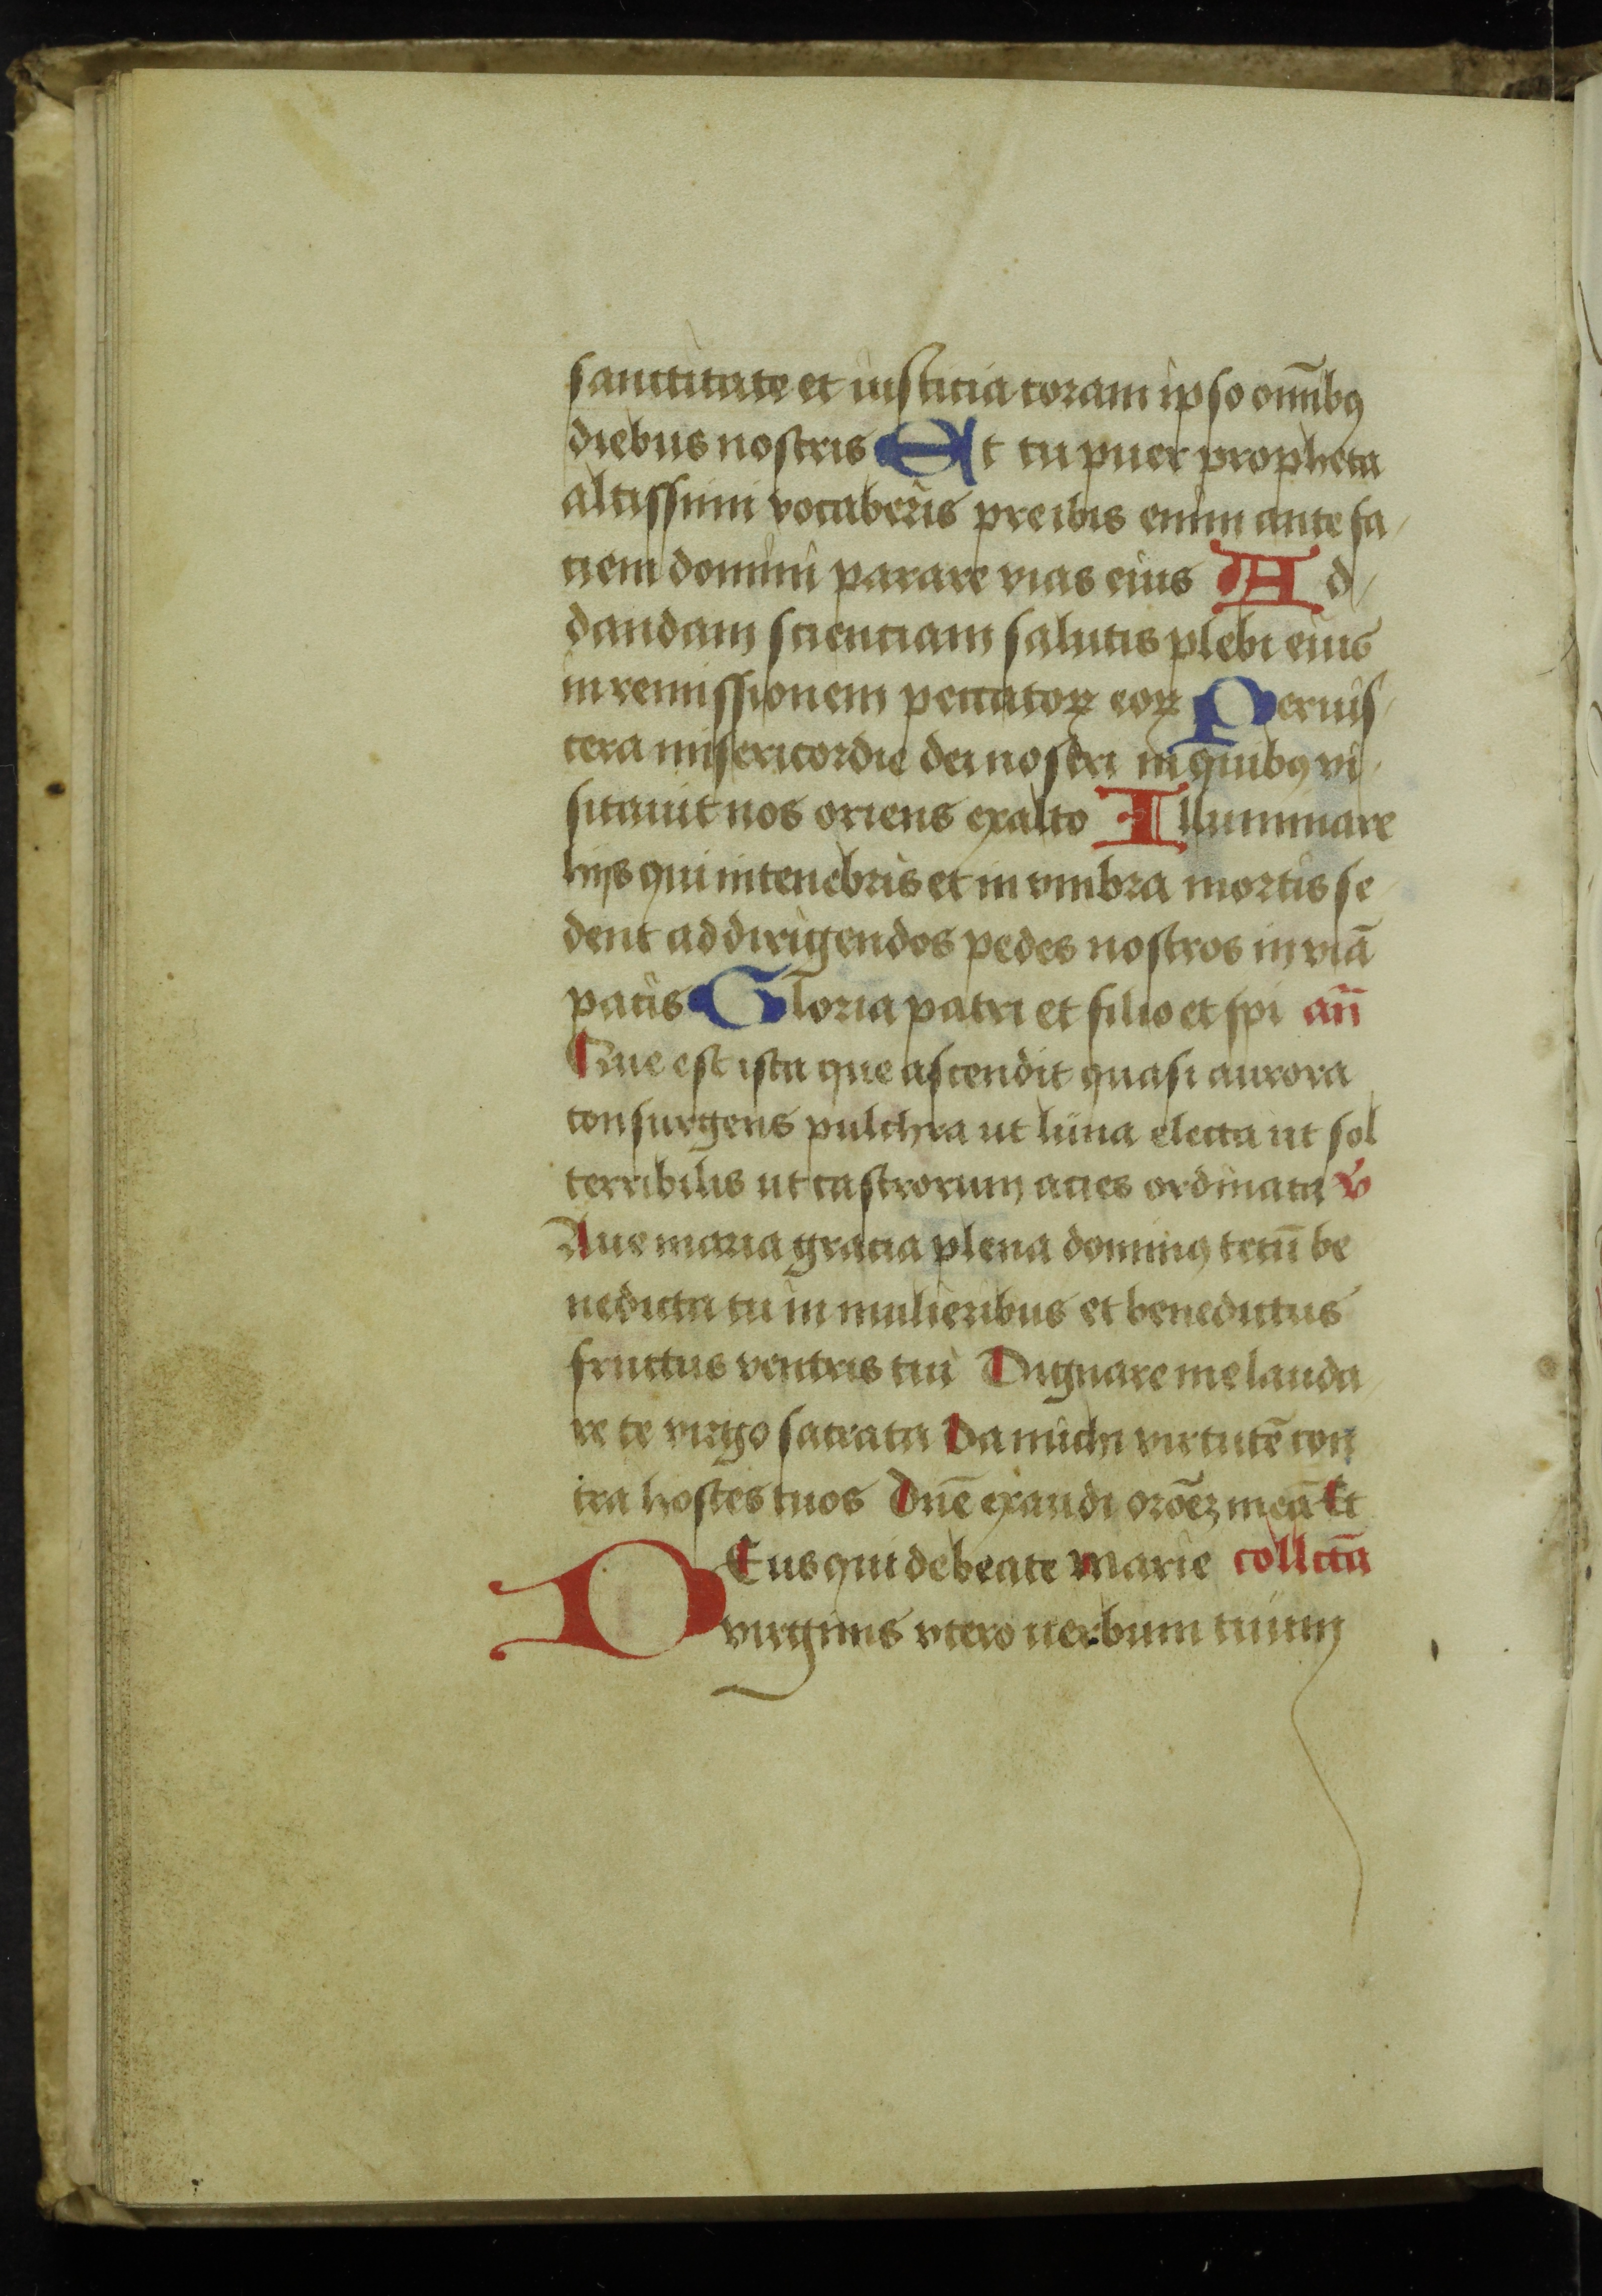 sanctitate et iusticia coram ipso om̄ibꝯ
diebus nostris Et tu puer propheta
altissimi vocaberis preibis enim ante fa
ciem domini parare vias eius Ad
dandam scienciam salutis plebi eius
in remissionem peccatoꝝ eoꝝ Per uis
cera misericordie dei nostri in quibꝯ vi
sitauit nos oriens ex alto Illuminare
hijs qui in tenebris et in vmbra mortis se
dent ad dirigendos pedes nostros in viā
pacis Gloria patri et filio et spi an̄
Que est ista que ascendit quasi aurora
consurgens pulchra ut luna electa ut sol
terribilis ut castrorum acies ordinata v̄
Aue maria gracia plena dominꝯ tecū be
nedicta tu in mulieribus et benedictus
fructus ventris tui Dignare me lauda
re te virgo sacrata Da michi virtutē con
tra hostes tuos Dn̄e exaudi orōeꝫ meā Et
DEus qui de beate marie collctā
virginis vtero uerbum tuum